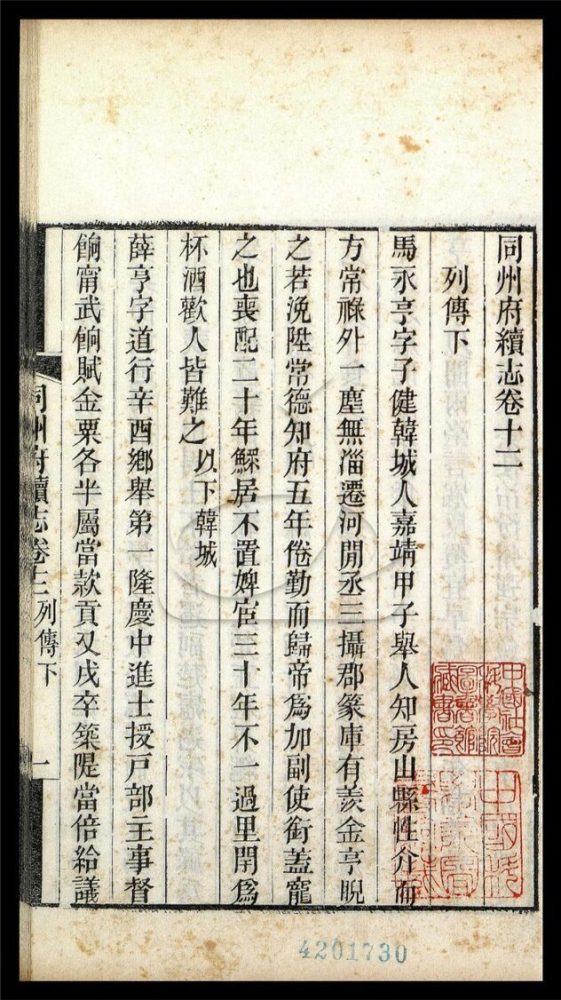 同州府續志卷十二
列傳下
馬永亨字子健韓城人嘉靖甲子舉人知房山縣性介而
方常祿外一塵無淄遷河閒丞三攝郡篆庫有羨金亨睨
之若浼陞常德知府五年倦勤而歸帝爲加副使銜蓋寵
之也喪配二十年鰥居不置婢宦三十年不一過里閈爲
杯酒歡人皆難之以下韓城
薛亨字道行辛酉鄉舉第一隆慶中進士授戸部主事督
餉甯武餉賦金粟各半屬當款貢又戌卒築隄當倍給議
同州府續志卷十二列傳下
一
中國社會
科學院
圖書館
藏書印
4201730